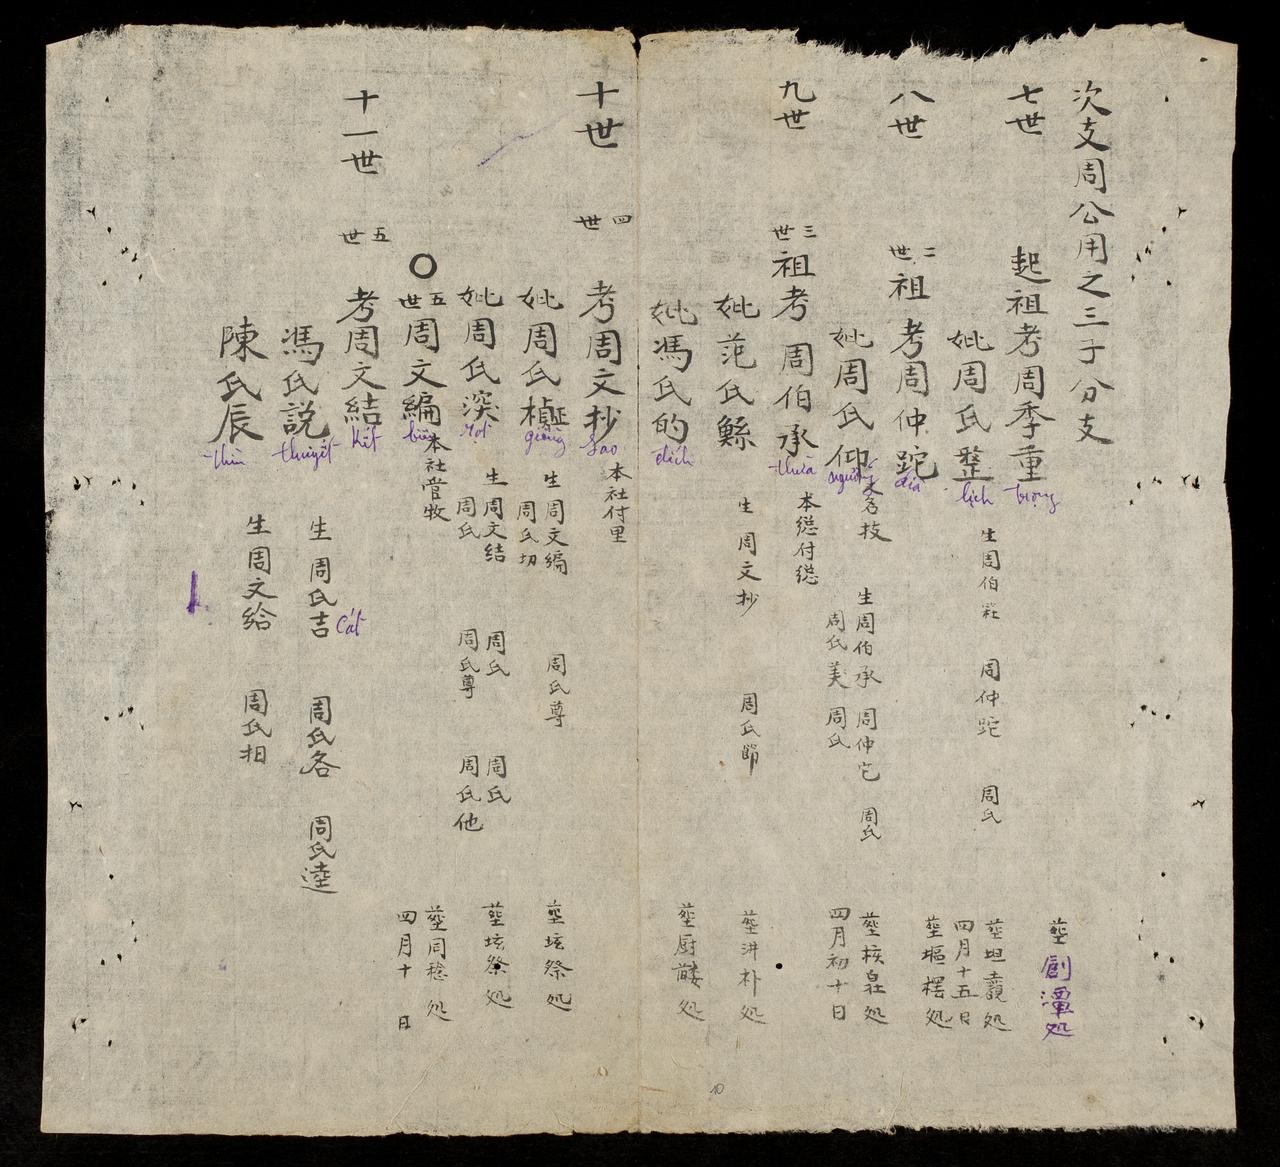 次支周公用之三子分支
七世
起祖考周季重 trọng
塟創潭処
妣周氏整 lịch
生周伯庄 周仲跎 周氏
塟坦竸処
四月十五日
八世
二世 祖考周仲跎 địa
塟塸檡処
妣周氏仰 ngưỡng
又名技
生周伯承 周仲它 周氏
周氏美 周氏
塟核皂処
四月初十日
九世
三世 祖考周伯承 thừa
本総付総
妣范氏鯀
生周文抄 周氏節
塟汫朴処
妣馮氏的 đích
塟厨髅処
十世
四世 考周文抄 Sao
本社付里
妣周氏樁 giềng
生周文編 周氏尊
周氏切
塟坛祭処
妣周氏深 rớt
生周文结 周氏 周氏
周氏 周氏尊 周氏他
塟坛祭処
○ 五世 周文編 biên
本社管牧
塟同稔処
四月十 日
十一世
五世 考周文結 kết
馮氏説 thuyết
生周氏吉 Cát 周氏各 周氏逹
陳氏辰 thìn
生周文給 周氏相
10